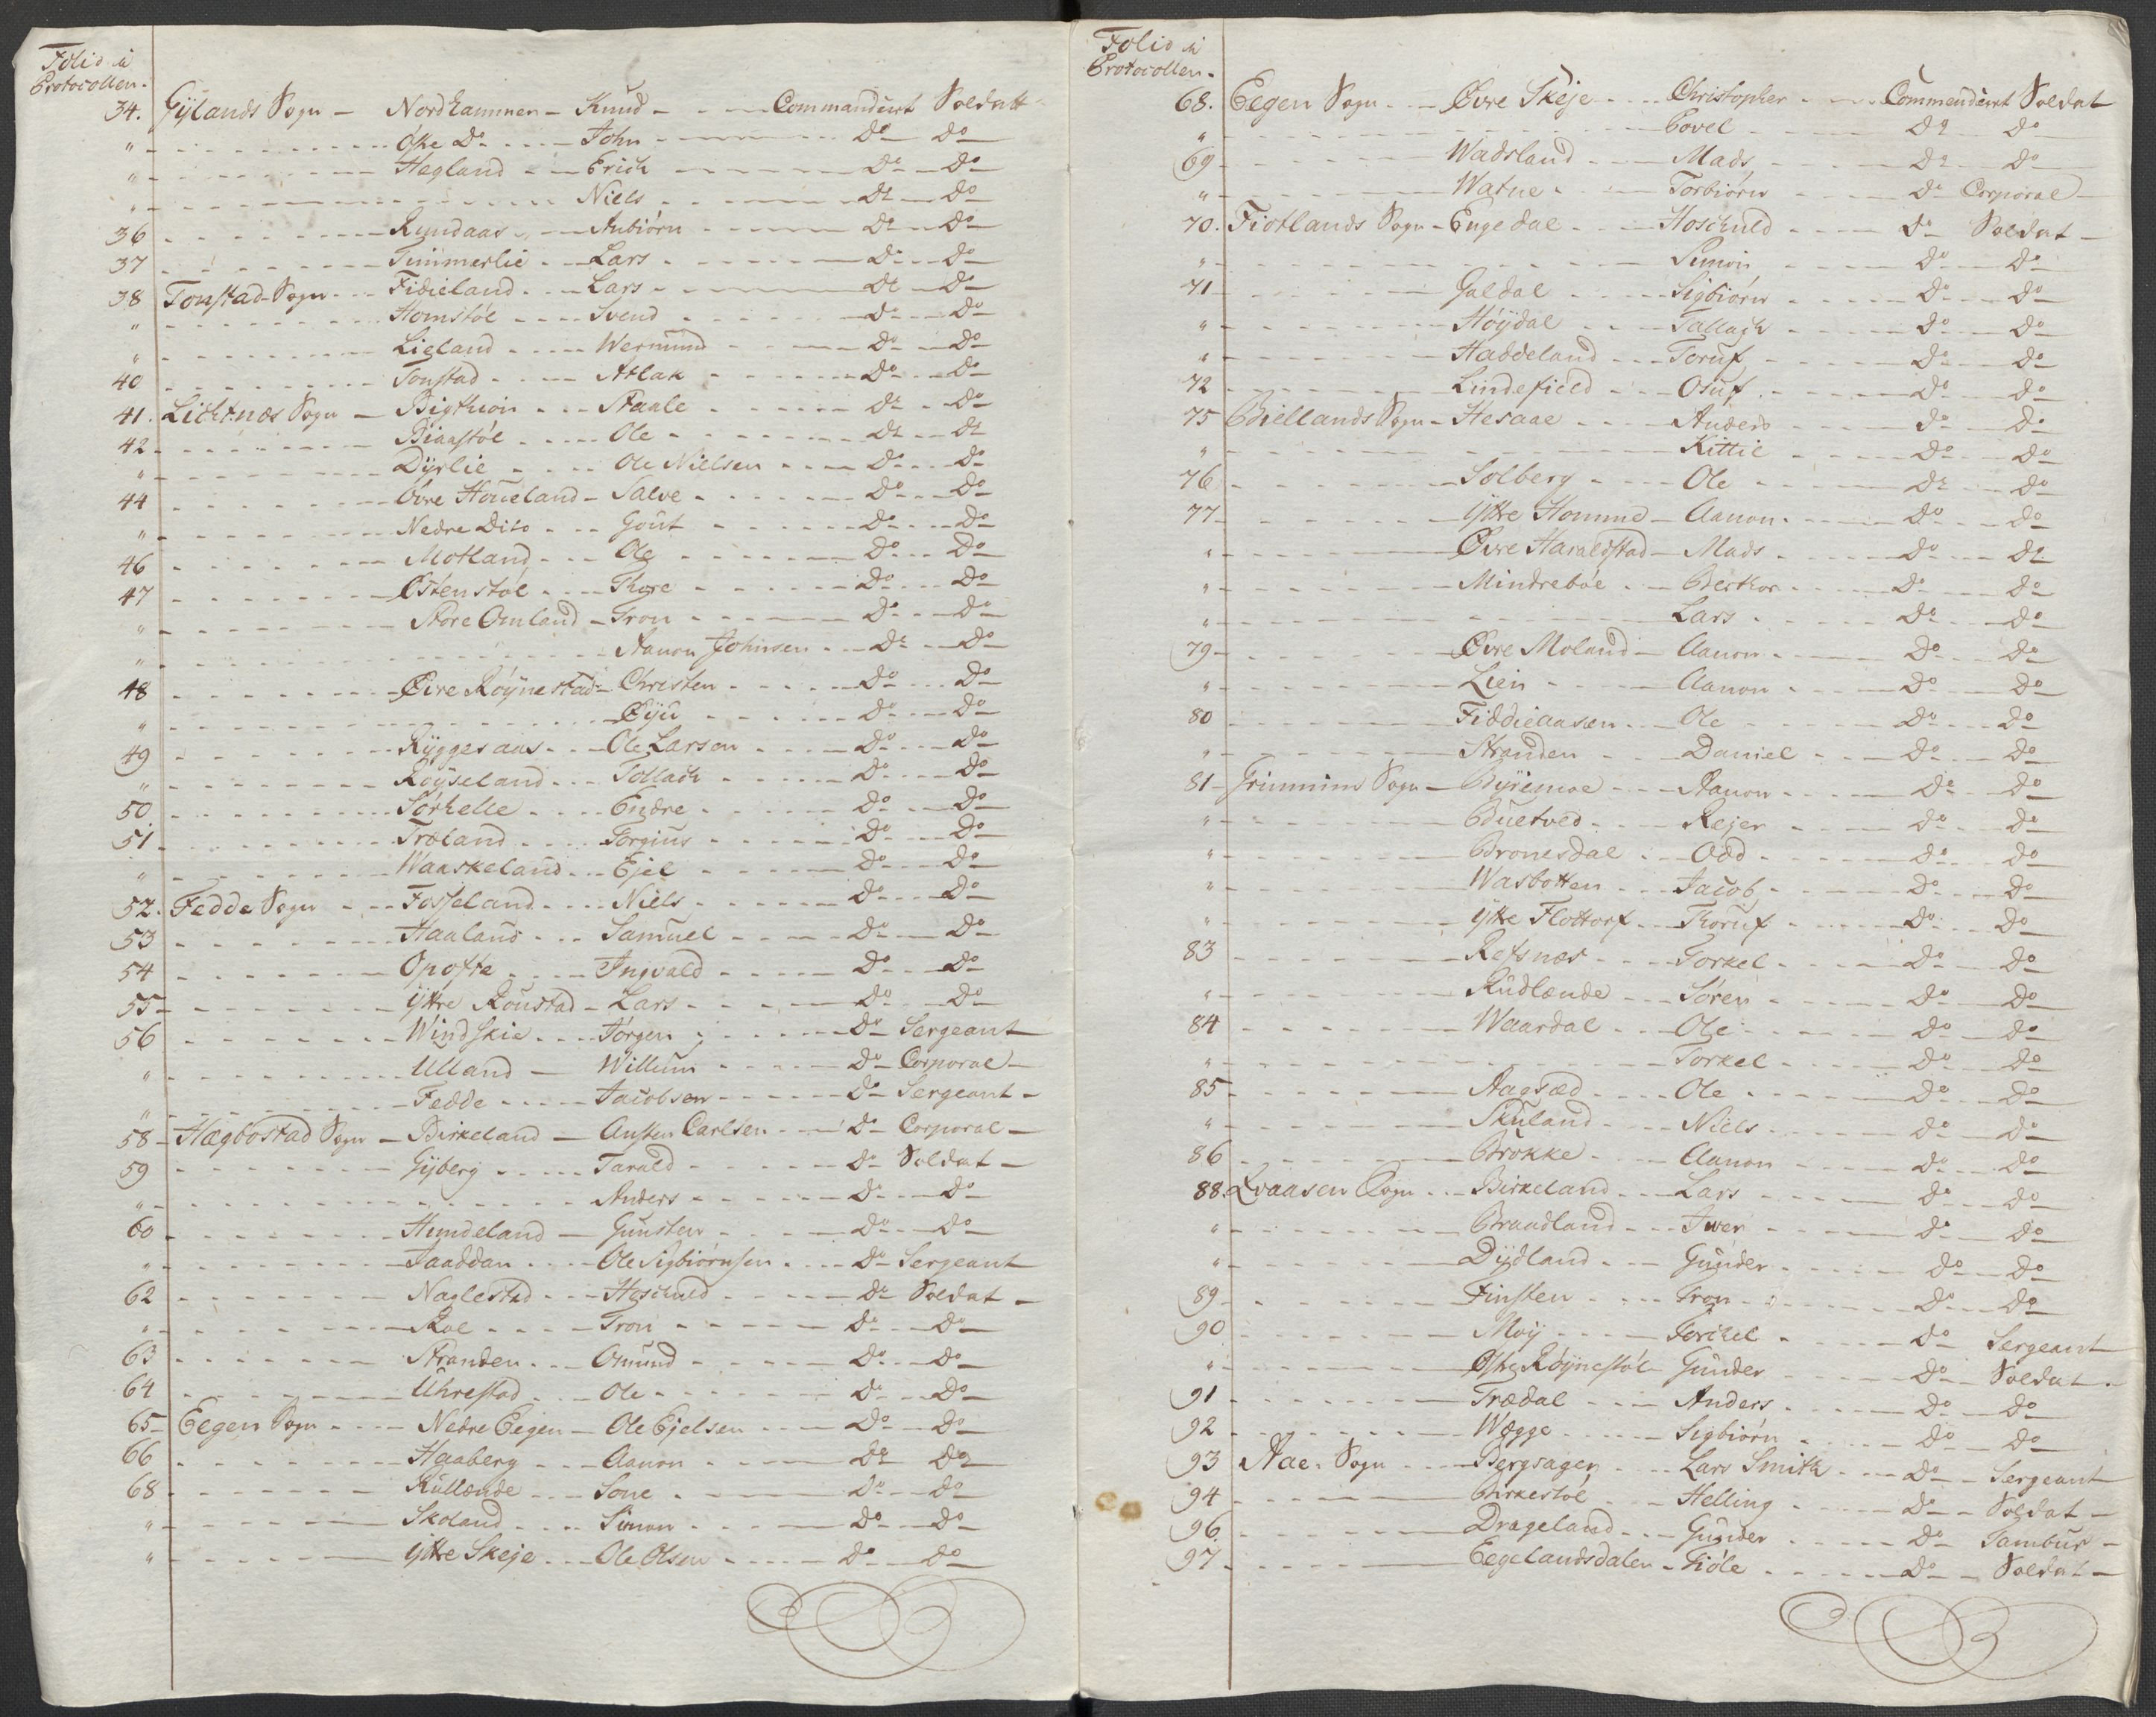 Folio i
Protocollen.
34. Gÿlands Sogn - Nordhammen - Knud - Commandeert Soldatt
" Øst̄e Do John Do Do
" Hegland Erich Do Do
" Niels Do Do
36 Rundaas Anbiørn Do Do
37 Timmerlie Lars Do Do
38 Tonstad Sogn Fidieland Lars Do Do
" Homstøl Svend Do Do
" Lieland Wermund Do Do
40 Tonstad Atlak Do Do
41. Lichtnæs Sogn - Bigthion Staale Do Do
42 Biaastøl Ole Do Do
" Dÿrlie Ole Nielsen Do Do
44 Øvre Houeland Salve Do Do
" Nedre Dito Gout Do Do
46 Motland Ole Do Do
47 Østenstøl Thore Do Do
" Store Omland Tron Do Do
" Aanon Johnsen Do Do
48 Øvre Røÿnestad Christen Do Do
" Eÿu Do Do
49 Rÿggesaas Ole Larsen Do Do
" Røÿseland Tollach Do Do
50. Sørhelle Endre Do Do
51 Træland Torgius Do Do
" Waaskeland Ejel Do Do
52. Fedde Sogn Fosseland Niels Do Do
53 Haaland Samuel Do Do
54 Opofte Ingvald Do Do
55 ÿttre Roustad Lars Do Do
56 Windskie Jørgen Do Sergeant
" Ulland Willum Do Corporal
" Fedde Jacobsen Do Sergeant
58 Hægbostad Sogn Birkeland Austen Carlsen Do Corporal
59 Gÿberg Tarald Do Soldat
" Anders Do Do
60 Hundeland Gunsten Do Do
" Jaaddan Ole Sigbiørnsen Do Sergeant
62 Naglestad Hoschuld Do Soldat
" Roe Tron Do Do
63 Stranden Omund Do Do
64 Uhrestad Ole Do Do
65 Eegen Sogn Nedre Eegen Ole Ejelsen Do Do
66 Haaberg Aanon Do Do
68 Rullende Sone Do Do
" Skoland Simon Do Do
" ÿttre Skeje Ole Olsen Do Do
Folio i
Protocollen.
68. Eegen Sogn Øvre Skeje Christopher Commendeert Soldat
" Povel Do Do
69 Wadsland Mads Do Do
" Watne Torbiørn Do Corporal
70. Fiotlands Sogn Engedal Hoschuld Do Soldat
" Simon Do Do
71 Galdal Sigbiørn Do Do
" Høÿdal Tallagh Do Do
" Haddeland Toruf Do Do
72 Lindefield Osuf Do Do
75 Biellands Sogn Hesaae Anders Do Do
" Kittil Do Do
76 Solberg Ole Do Do
77 ÿttre Homme Aanon Do Do
" Øvre Haraldstad Mads Do Do
" Mindrebøe Berthor Do Do
" Lars Do Do
79 Øvre Moland Aanon Do Do
" Lien Aanon Do Do
80 Fiddieaasen Ole Do Do
" Stranden Daniel Do Do
81 Grimmim Sogn Bÿremoe Aanon Do Do
" Buetved Rejer Do Do
" Bronesdal Odd Do Do
" Wasbotten Jacob Do Do
" ÿttre Flottorf Thoruf Do Do
83 Refsnæs Torkel Do Do
" Rudlænde Søren Do Do
84 Waardal Ole Do Do
" Torkel Do Do
85 Aagsæd Ole Do Do
" Skuland Niels Do Do
86 Brokke Aanon Do Do
88. Qvaasen Sogn Birkeland Lars Do Do
" Braadland Iwer Do Do
" Dÿdland Gunder Do Do
89 Finsten Tron Do Do
90 Moÿ Torkel Do Sergeant
" Røÿnestøl Gunder Do Soldat
91 Trædal Anders Do Do
92 Wegge Sigbiørn Do Do
93 Aae Sogn Bergsager Lars Smith Do Sergeant
94 Birkestøl Helling Do Soldat
96 Drageland Gunder Do Tambur
97 Eegelandsdalen Fiøle Do Soldat